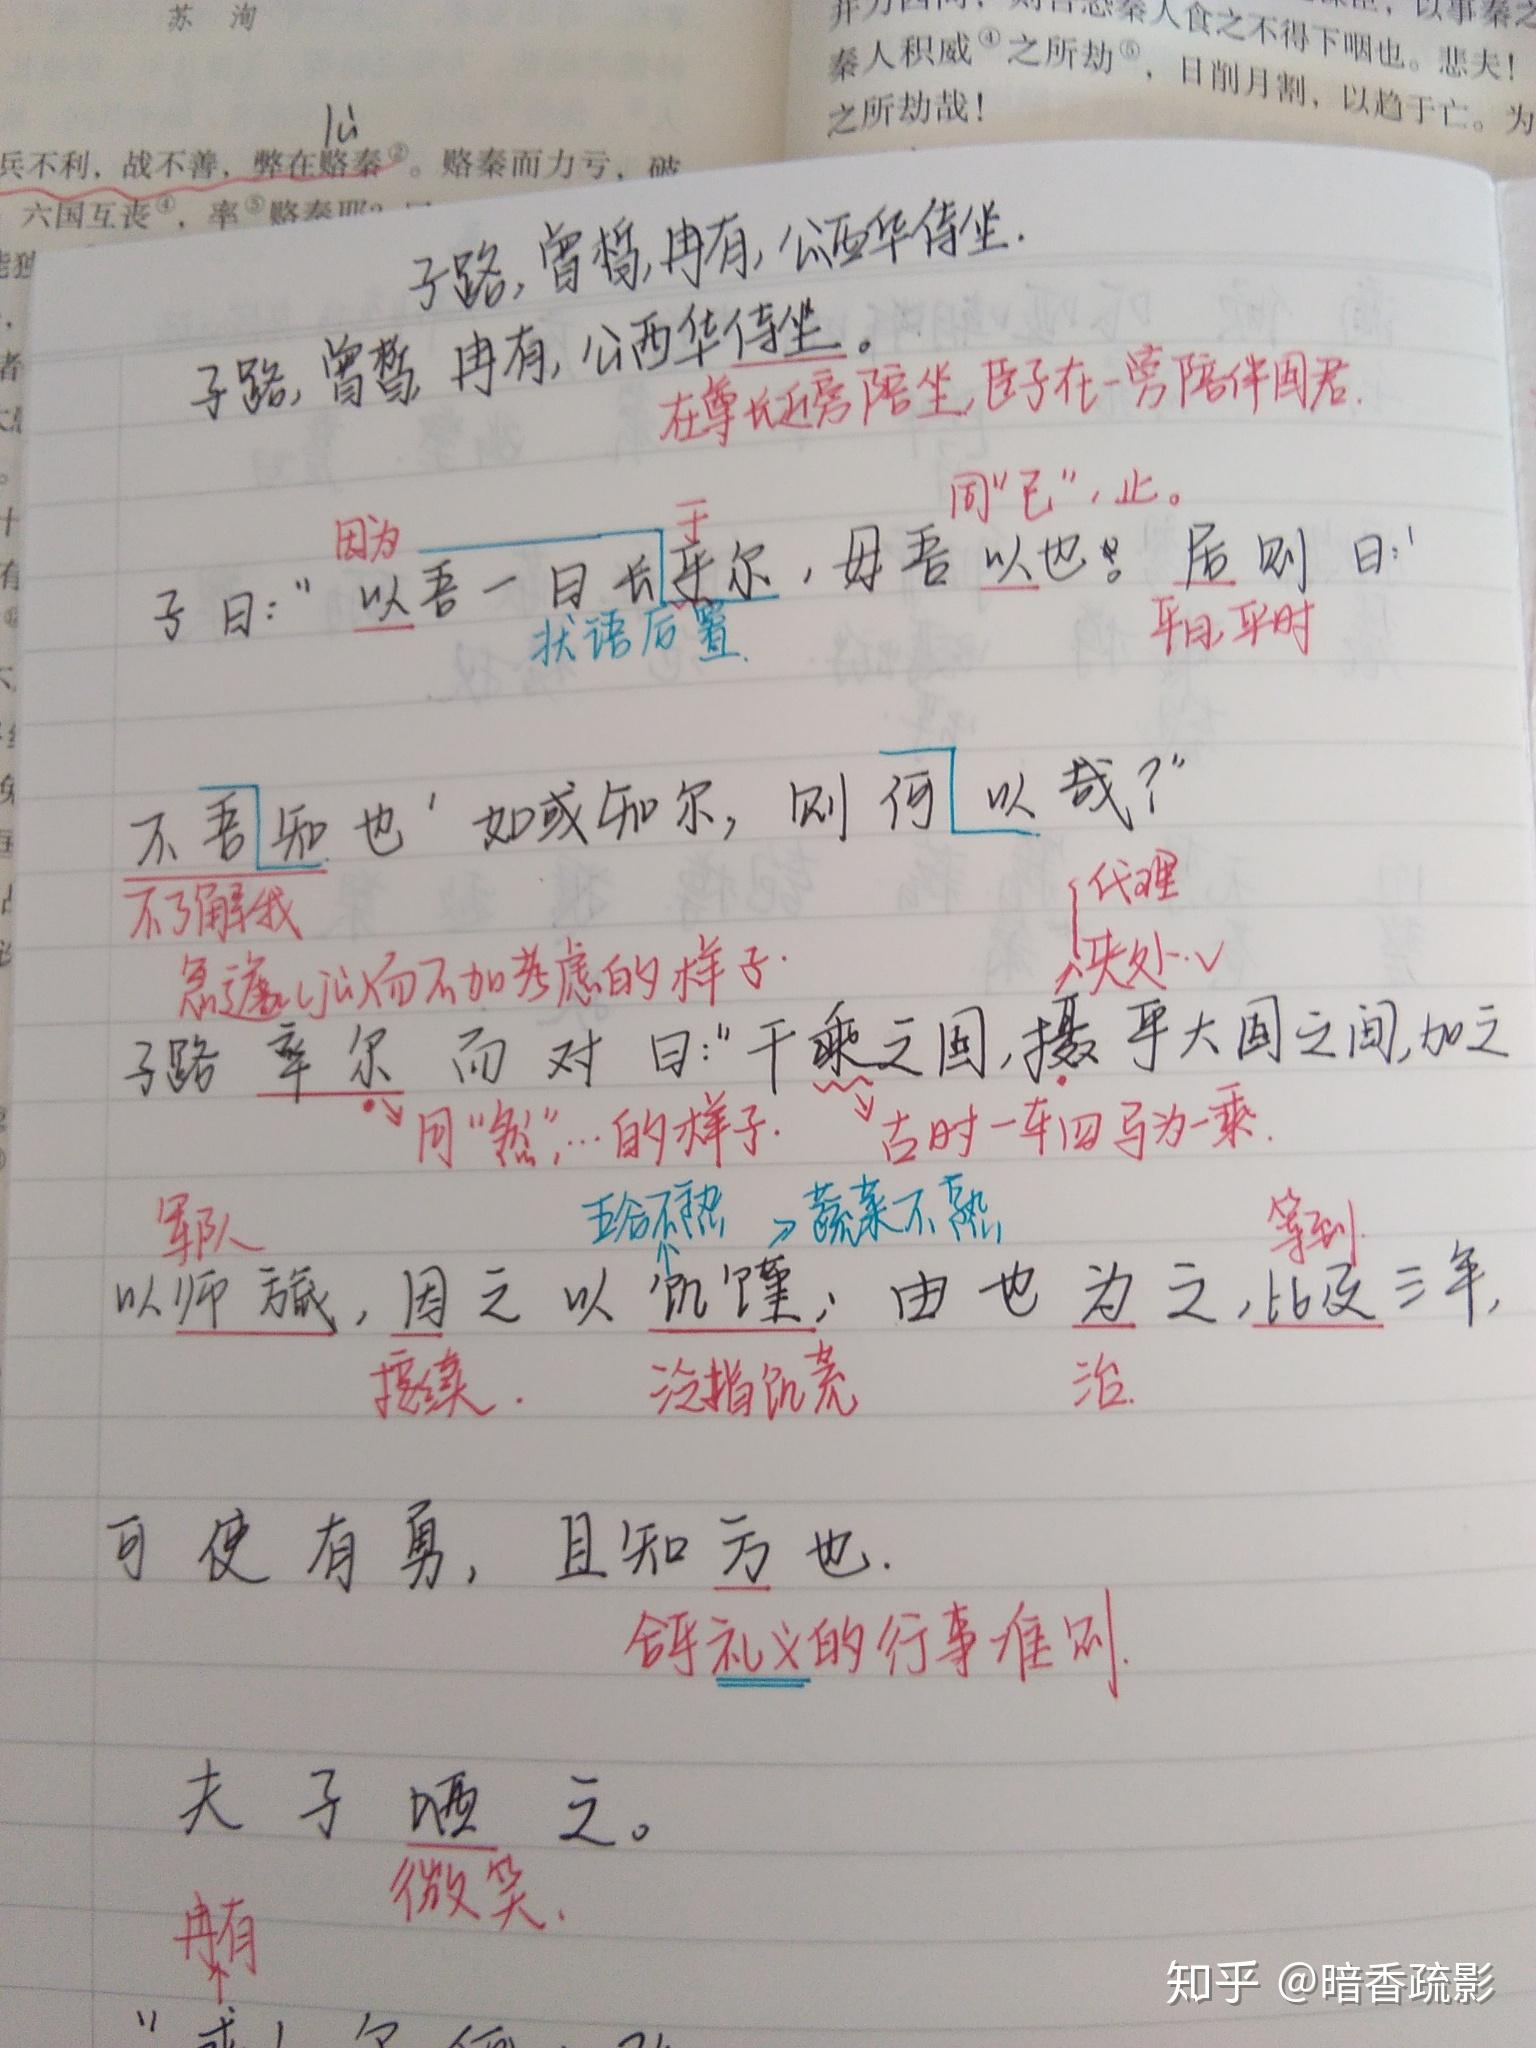 苏 洵
兵不利，战不善，弊在赂秦②。赂秦而力亏，破
六国互丧④，率⑤赂秦耶？
秦人食之不得下咽也。悲夫！
秦人积威④之所劫⑤，日削月割，以趋于亡。为
之所劫哉！
子路,曾皙,冉有,公西华侍坐.
子路,曾皙,冉有,公西华侍坐。
在尊长近旁陪坐,臣子在一旁陪伴国君.
因为 于 同“已”,止。
子曰:“以吾一日长乎尔,毋吾以也。居则曰:‘
状语后置 平日,平时
不吾知也’如或知尔,则何以哉?”
不了解我 代理
夹处.√
急遽而不加考虑的样子.
子路率尔而对曰:“千乘之国,摄乎大国之间,加之
同“然”,…的样子. 古时一车四马为一乘.
军队 五谷不熟 蔬菜不熟 等到
以师旅,因之以饥馑,由也为之,比及三年,
接续. 泛指饥荒 治.
可使有勇,且知方也.
合乎礼义的行事准则.
夫子哂之。
微笑.
冉有
知乎 @暗香疏影